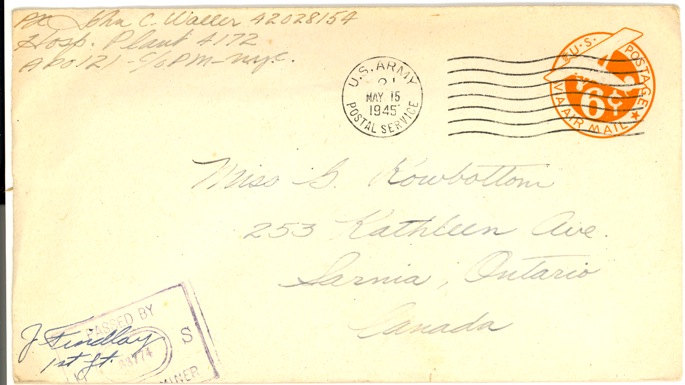 Pfc John C. Waller 42028154
Hosp. Plant 4172
APO 121 - c/o PM - nyc.
U.S. ARMY
21
MAY 15
1945
POSTAL SERVICE
U.S. POSTAGE
6¢
VIA AIR MAIL
Miss G. Rowbottom
253 Kathleen Ave.
Sarnia, Ontario
Canada
PASSED BY
S
J Findlay
1st Lt.